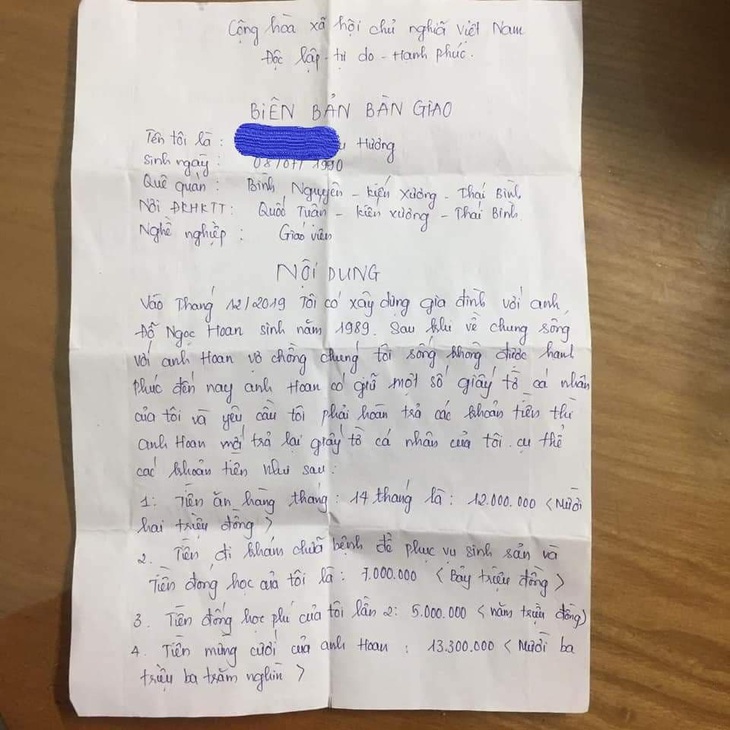 Cộng hòa xã hội chủ nghĩa Việt Nam
Độc lập - tự do - Hạnh phúc.
BIÊN BẢN BÀN GIAO
Tên tôi là : Hương
Sinh ngày : 1990
Quê quán : Bình Nguyên - Kiến Xương - Thái Bình
Nơi ĐKHKTT: Quốc Tuấn - Kiến xương - Thái Bình.
Nghề nghiệp : Giáo viên
NỘI DUNG
Vào Tháng 12/2019 Tôi có xây dựng gia đình với anh
Đỗ Ngọc Hoan sinh năm 1989. Sau khi về chung sống
với anh Hoan vợ chồng chúng tôi sống không được hạnh
phúc đến nay anh Hoan có giữ một số giấy tờ cá nhân
của tôi và yêu cầu tôi phải hoàn trả các khoản tiền thì
anh Hoan mới trả lại giấy tờ cá nhân của tôi cụ thể
các khoản tiền như sau :
1: Tiền ăn hàng tháng : 14 tháng là : 12.000.000 < Mười
hai triệu đồng >
2. Tiền đi khám chữa bệnh để phục vụ sinh sản và
Tiền đóng học của tôi là : 7.000.000 < Bảy triệu đồng >
3. Tiền đóng học phí của tôi lần 2: 5.000.000 < năm triệu đồng)
4. Tiền mừng cưới của anh Hoan : 13.300.000 < Mười ba
triệu ba trăm nghìn >